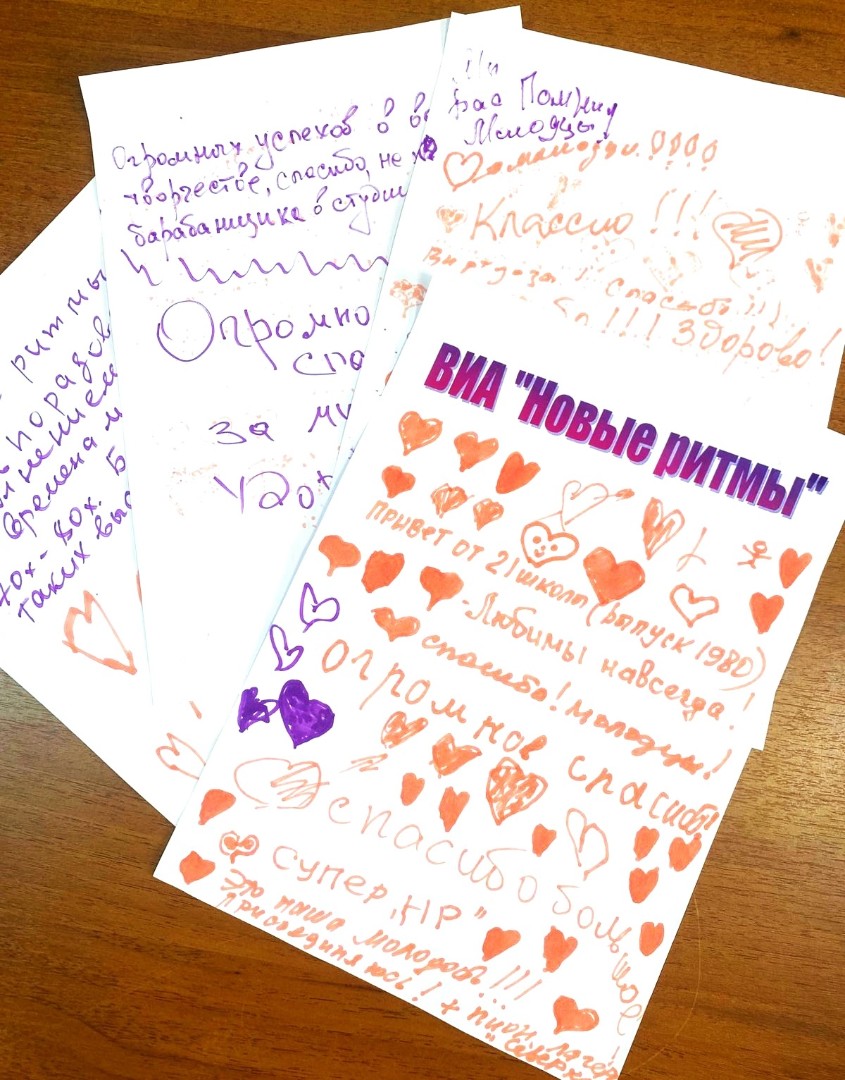 ритмы
порадов
нением
времена м
70х-80х. Б
таких выс
Огромных успехов в
творчестве, спасибо, не
барабанщика в студи
Огромно
спа
за ми
Удо
Вас Помним
Молодцы!
молодцы!!!!
Классно!!!
Виртуозы! Спасибо!!!
!!! Здорово!
ВИА "Новые ритмы"
Привет от 21 школы (выпуск 1980)
-Любимы навсегда!
спасибо! молодцы!
Огромное спасибо!
спасибо большое!
супер "НР"
Это наша молодость!!!
Присоединяюсь! + пион. лагерь
"Сверх